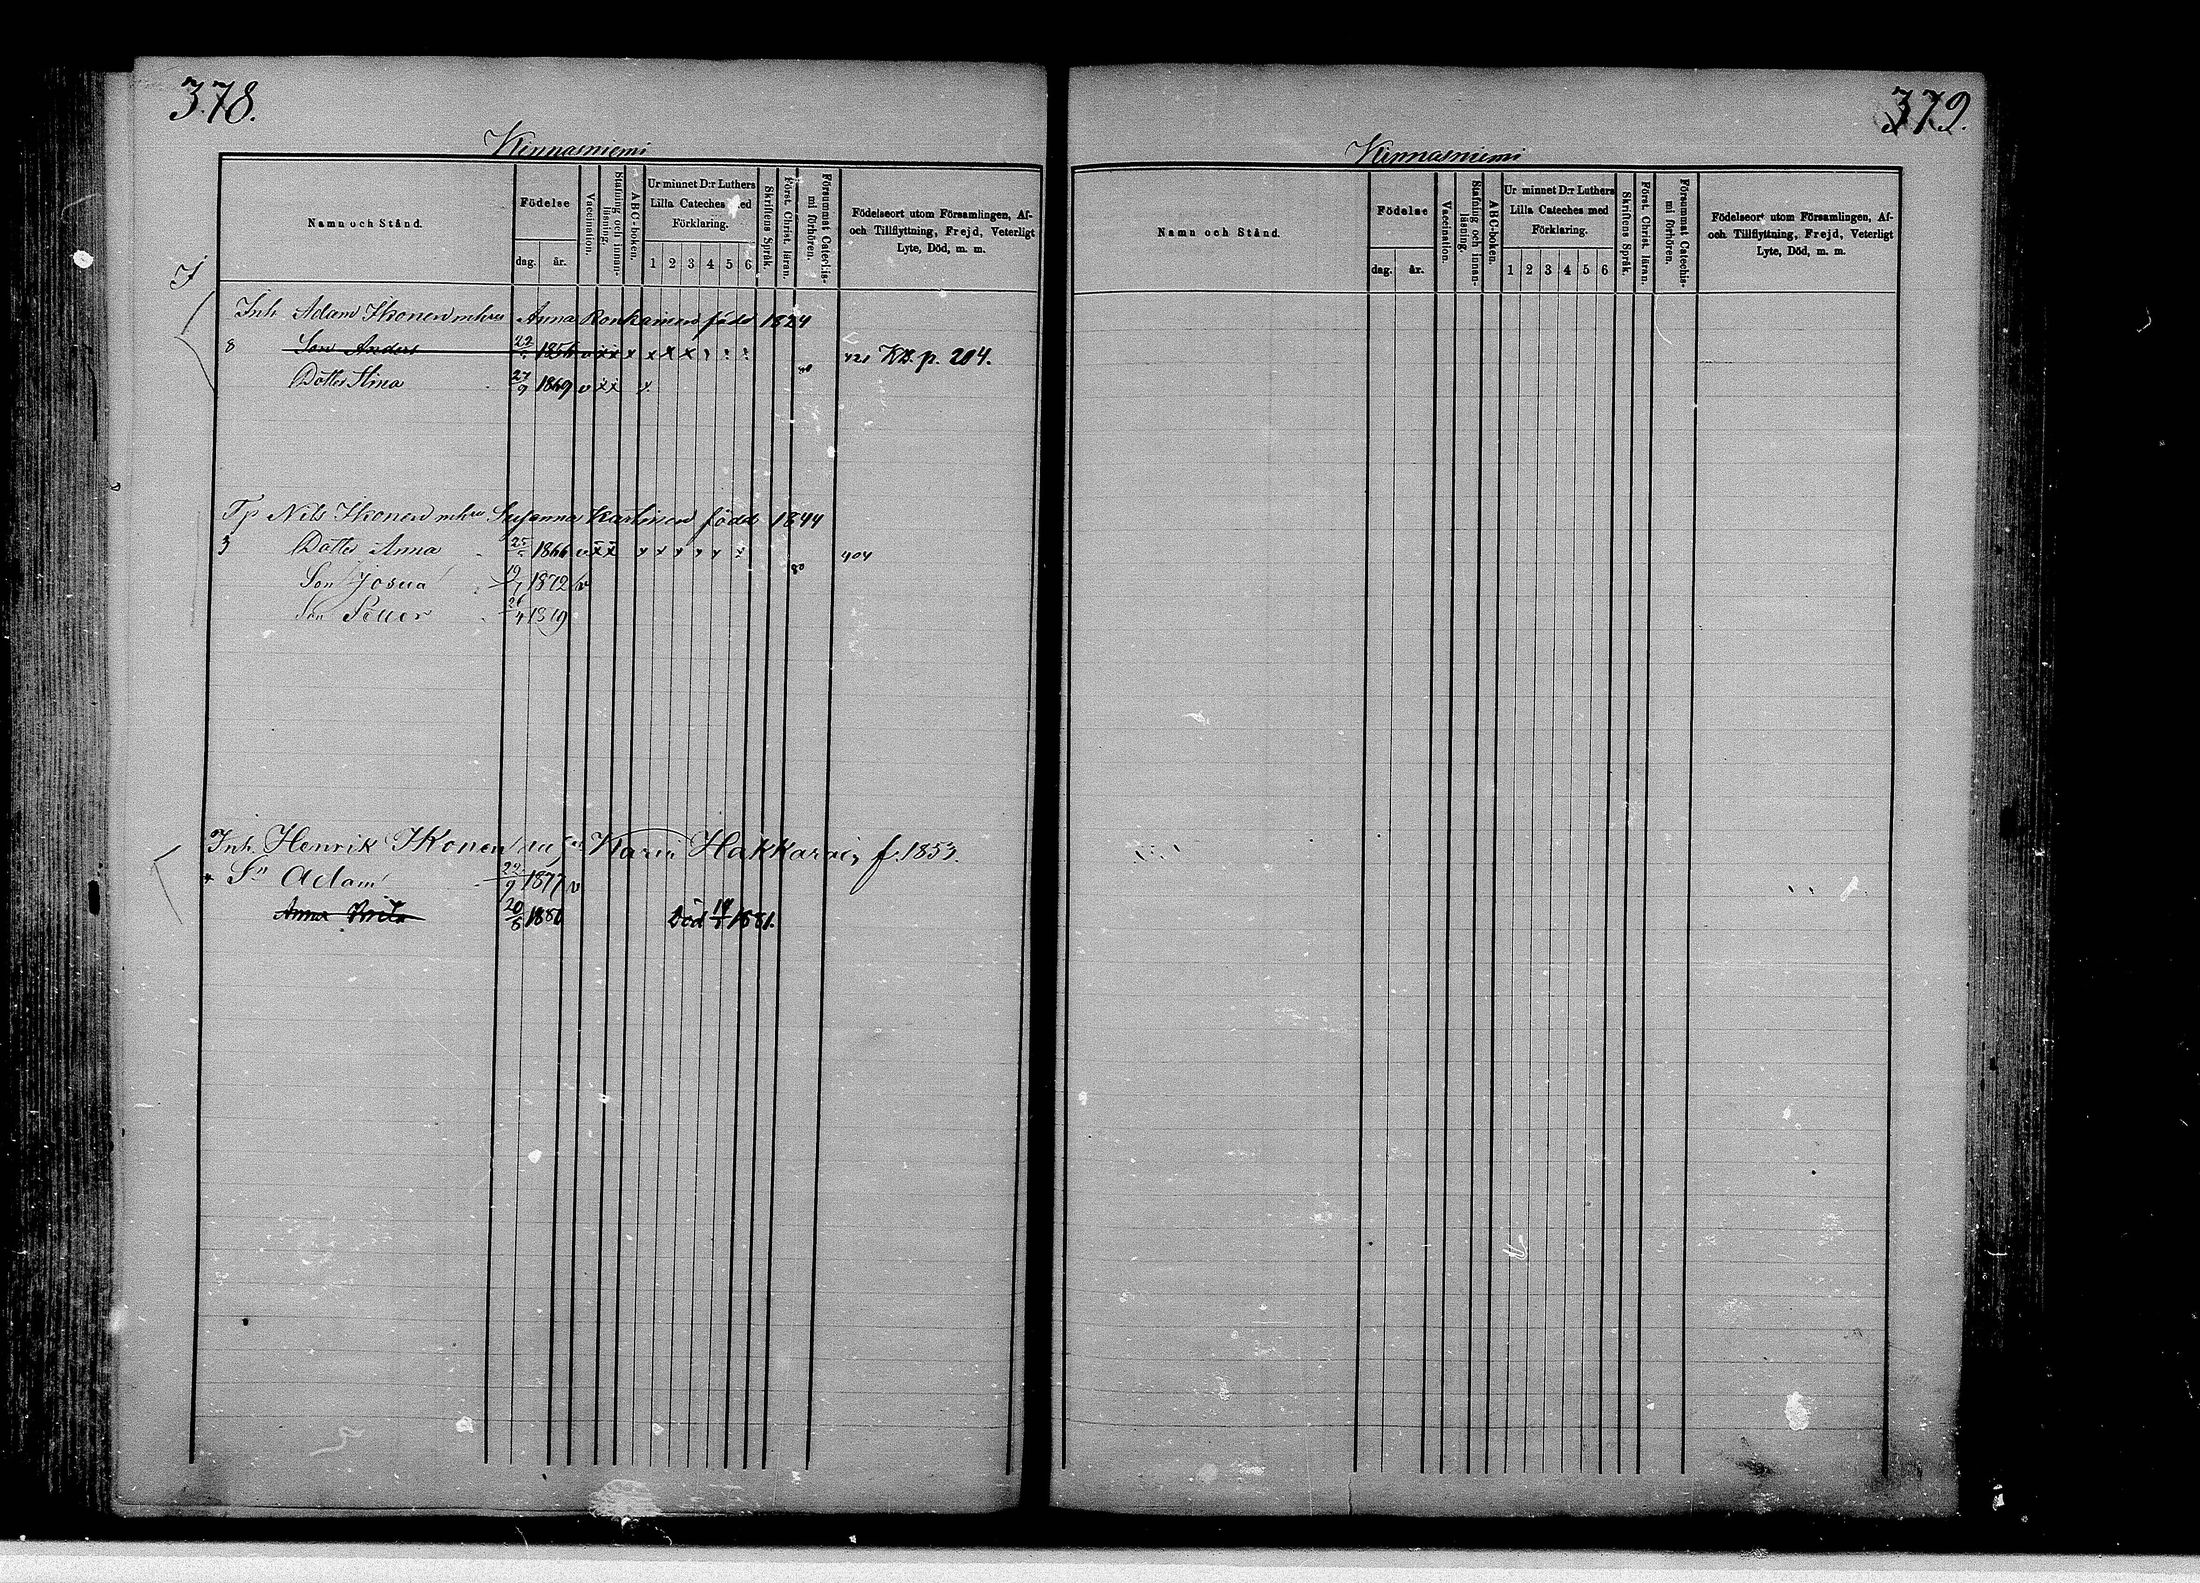 378.
Kinnasniemi
Namn och Stånd.
Födelse
dag. år.
Vaccination.
Stafning och innanläsning.
ABC-boken.
Ur minnet D:r Luthers Lilla Cateches med Förklaring.
1 2 3 4 5 6
Skriftens Språk.
Först. Christ. läran.
Försummat Catechismi förhören.
Födelseort utom Församlingen, Af- och Tillflyttning, Frejd, Veterligt Lyte, Död, m. m.
I
Inh. Adam Ikonen m hu Anna Ronkainen född 1824
8 Son Anders 1856 v x x x x x x 421 KB. p. 204.
Dotter Stina 27/9 1869 v x x x 80
Tp Nils Ikonen m hu Susanna Karlinen född 1844
3 Dotter Anna 1866 v x x x x x x x x 404
Son Josua 19/7 1872 v 80
Son Petter 26/4 1869
Inh. Henrik Ikonen Karin Hakkarain f. 1853.
Sn Adam 22/9 1877 v
Anna Brita 20/8 1880 Död 1881.
379.
Kinnasniemi
Namn och Stånd.
Födelse
dag. år.
Vaccination.
Stafning och innanläsning.
ABC-boken.
Ur minnet D:r Luthers Lilla Cateches med Förklaring.
1 2 3 4 5 6
Skriftens Språk.
Först. Christ. läran.
Försummat Catechismi förhören.
Födelseort utom Församlingen, Af- och Tillflyttning, Frejd, Veterligt Lyte, Död, m. m.